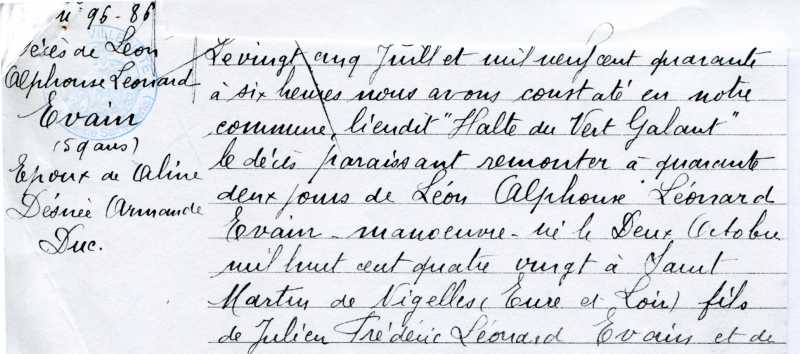 n° 96-86
Décès de Léon
Alphonse Léonard
Evain
(59ans)
Epoux de Aline
Désirée Armande
Duc.
Le vingt cinq Juillet mil neuf cent quarante
à six heures nous avons constaté en notre
commune, lieudit "Halte du Vert Galant"
le décès paraissant remonter à quarante
deux jours de Léon Alphonse Léonard
Evain - manoeuvre - né le Deux Octobre
mil huit cent quatre vingt à Saint
Martin de Nigelles (Eure et Loir) fils
de Julien Frédéric Léonard Evain et de